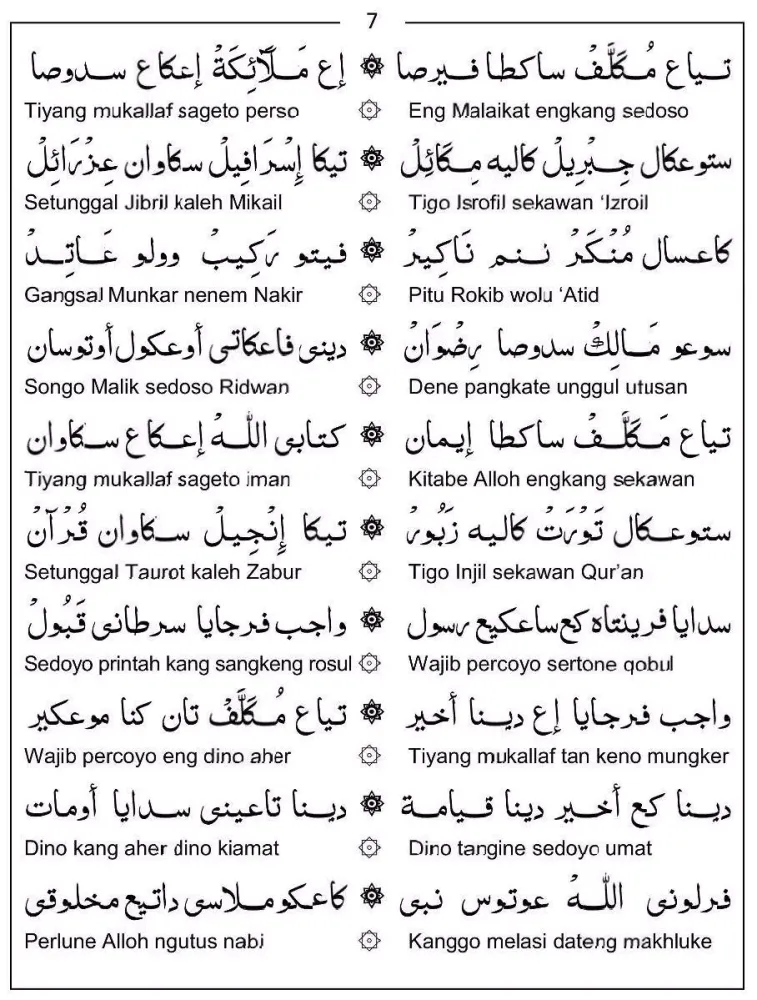 7
تـيـاع مُـكَلَّفْ ساكطا فـيـرصا ۞ إع مَـلَآئِكَةْ إعكاع سـدوصا
Tiyang mukallaf sageto perso ۞ Eng Malaikat engkang sedoso
ستوعكال جِـبْرِيلْ كاليه مِـكَائِلْ ۞ تيكا إِسْرَافِيلْ سكاوان عِزْرَائِلْ
Setunggal Jibril kaleh Mikail ۞ Tigo Isrofil sekawan ‘Izroil
كاعسال مُنْكَرْ نـنـم نَاكِيرْ ۞ فـيتو رَكِيبْ وولو عَـاتِـدْ
Gangsal Munkar nenem Nakir ۞ Pitu Rokib wolu ‘Atid
سوعو مَـالِكْ سدوصا رِضْوَانْ ۞ ديني فاعكاتى أوعكول أوتوسان
Songo Malik sedoso Ridwan ۞ Dene pangkate unggul utusan
تياع مَـكَلَّـفْ ساكطا إيمان ۞ كتابى اللّـه إعـكاع سـكاوان
Tiyang mukallaf sageto iman ۞ Kitabe Alloh engkang sekawan
ستوعـكال تَوْرَتْ كاليه زَبُورْ ۞ تـيكا إِنْجِيلْ سـكاوان قُرْآنْ
Setunggal Taurot kaleh Zabur ۞ Tigo Injil sekawan Qur’an
سدايا فرينتاه كع ساعكيع رسول ۞ واجب فـرجايا سرطانى قَبُولْ
Sedoyo printah kang sangkeng rosul ۞ Wajib percoyo sertone qobul
واجب فـرجايا إع ديـنا أخير ۞ تياع مُـكَلَّفْ تان كنا موعكير
Wajib percoyo eng dino aher ۞ Tiyang mukallaf tan keno mungker
ديـنا كع أخـير دينا قـيامـة ۞ ديـنا تاعينى سـدايا أومات
Dino kang aher dino kiamat ۞ Dino tangine sedoyo umat
فـرلونى اللّـهُ عوتوس نبى ۞ كاعكو مـلاسى داتيع مخلوقى
Perlune Alloh ngutus nabi ۞ Kanggo melasi dateng makhluke